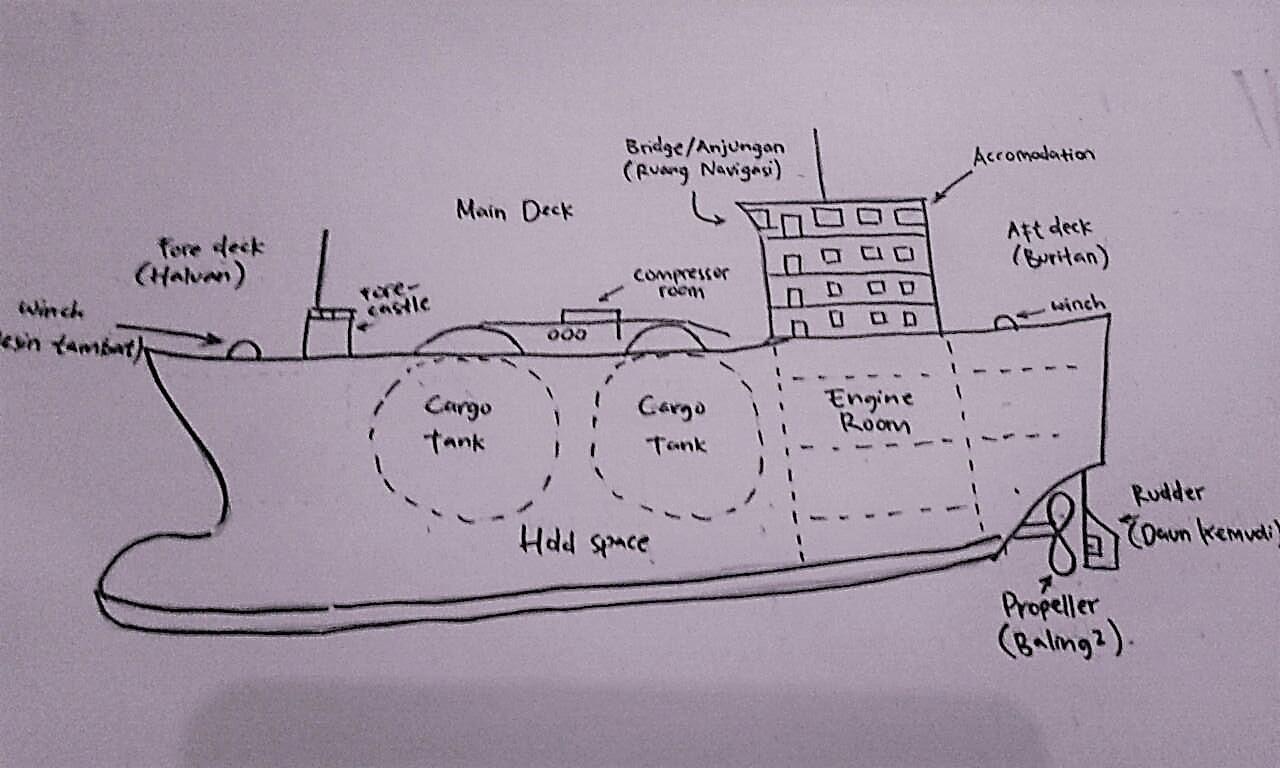 Bridge/Anjungan
(Ruang Navigasi)
Accomodation
Main Deck
Fore deck
(Haluan)
Aft deck
(Buritan)
compressor
room
fore-
castle
winch
esin tambat)
winch
Cargo
Tank
Cargo
Tank
Engine
Room
Hold space
Rudder
(Daun Kemudi)
Propeller
(Baling²).